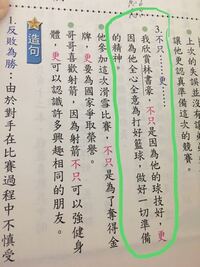 上的失誤並沒有
讓他更認真準備這次的競賽。
3.不只……更……
我欣賞林書豪,不只是因為他的球技好,更
因為他全心全意為打好籃球,做好一切準備
的精神。
他參加這次滑雪比賽,不只是為了奪得金
牌,更要為國家爭取榮譽。
哥哥喜歡射箭,因為射箭不只可以強健身
體,更可以認識許多興趣相同的朋友。
造句
1.反敗為勝:由於對手在比賽過程中不慎受